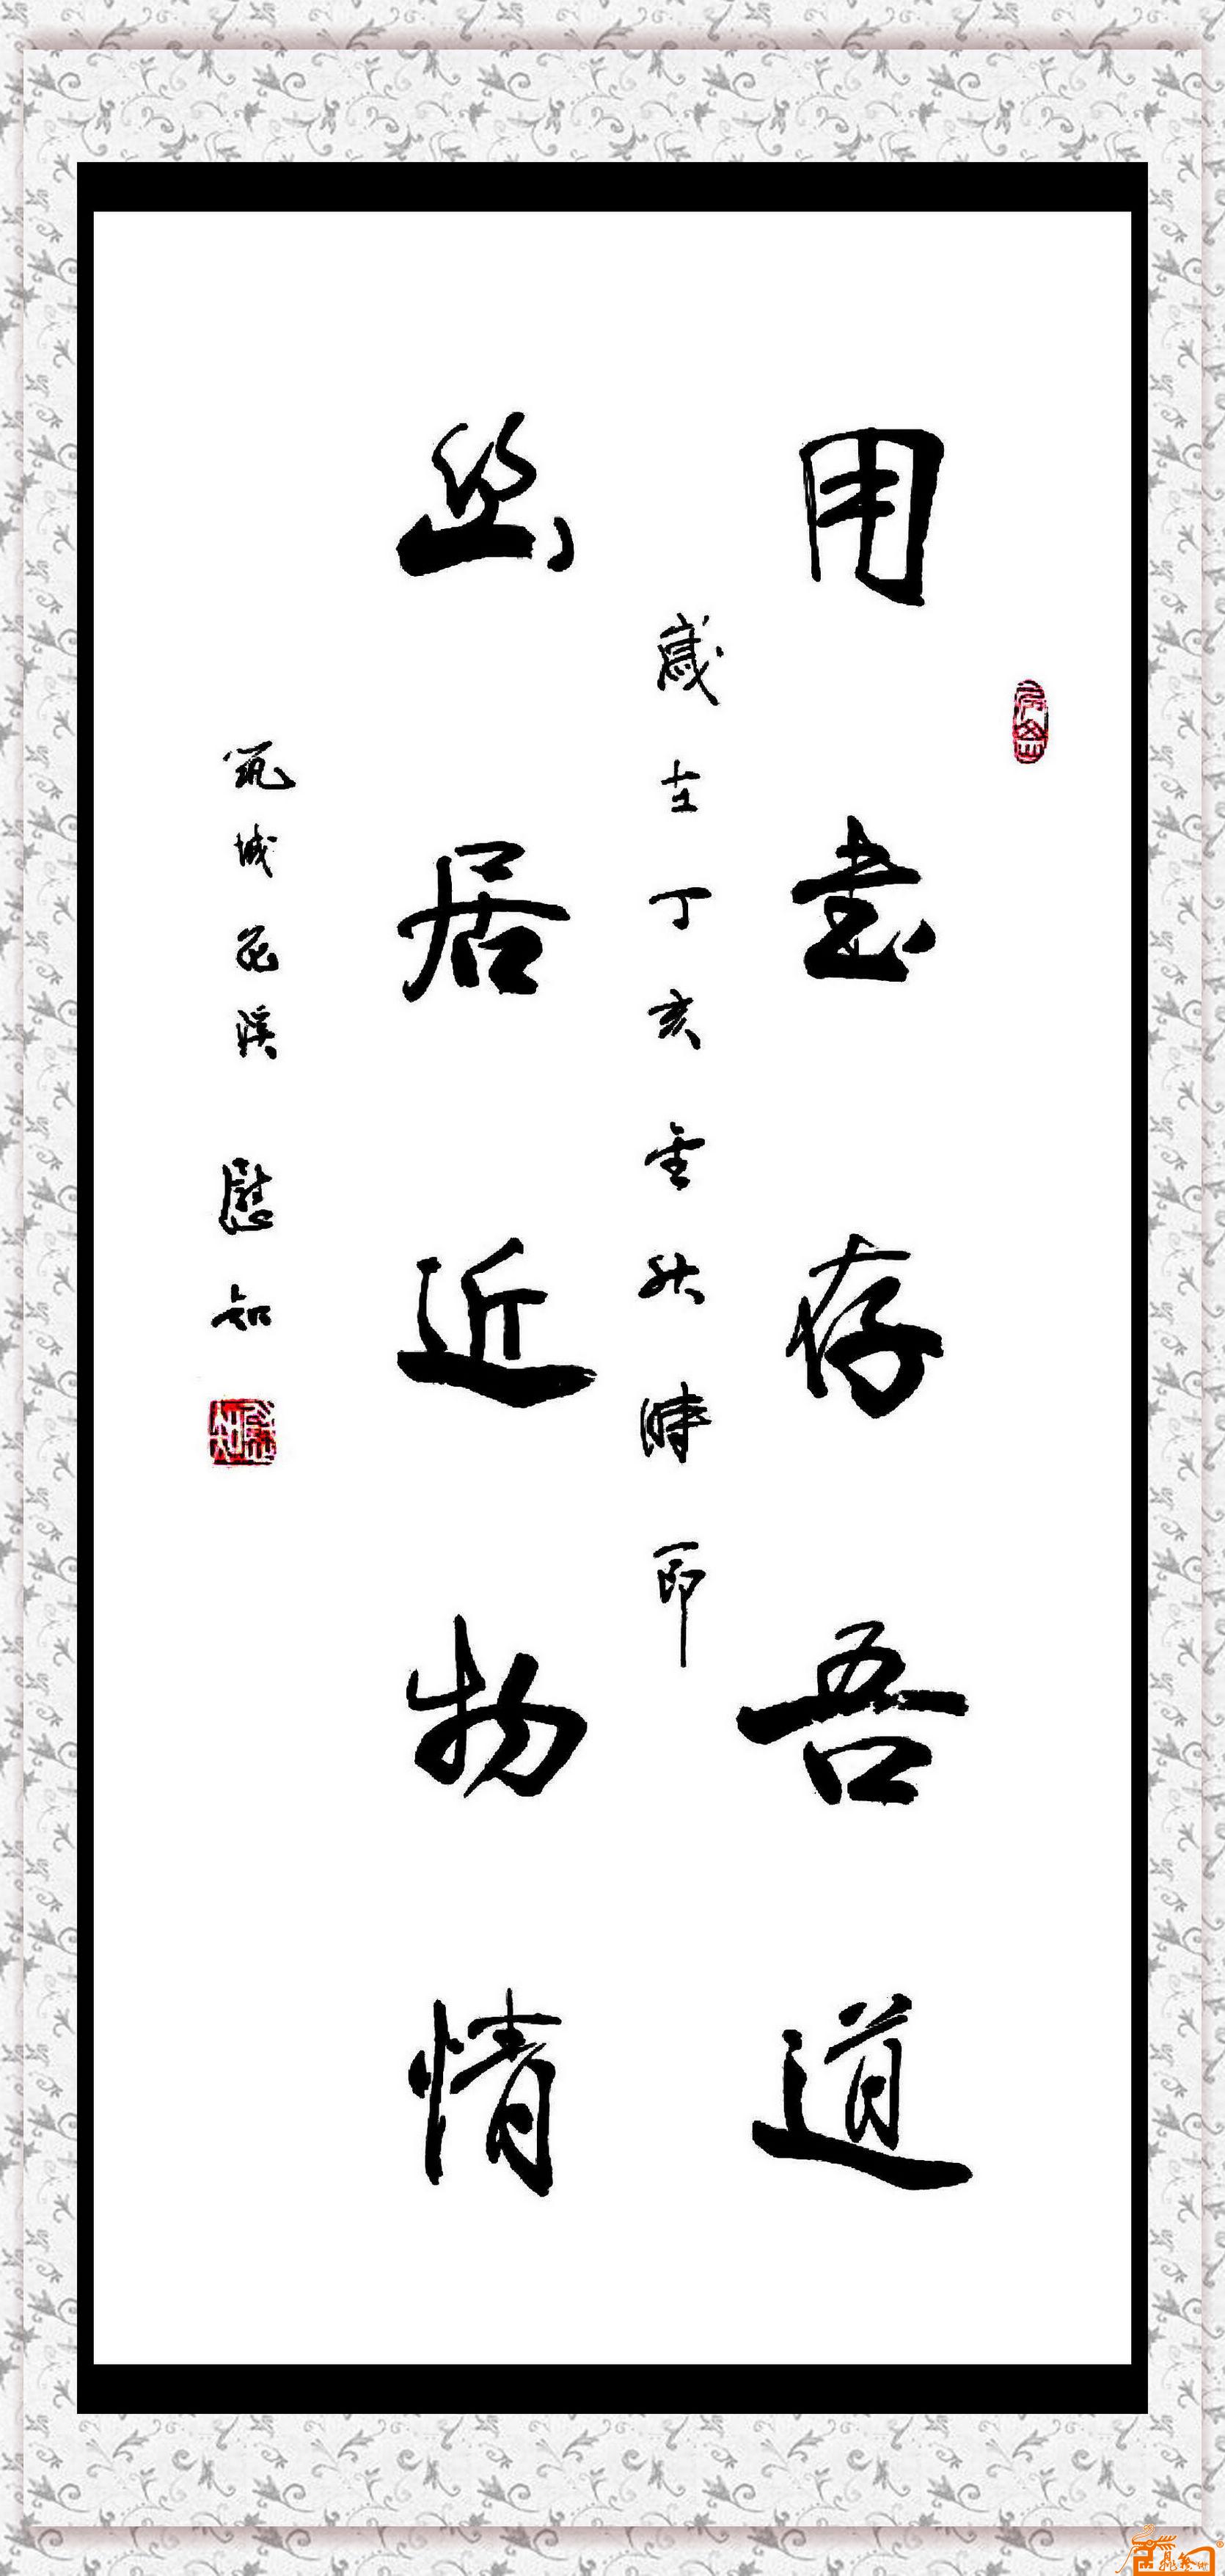 用書存吾道
歲在丁亥金秋時節
幽居近物情
筑城花溪 慰知